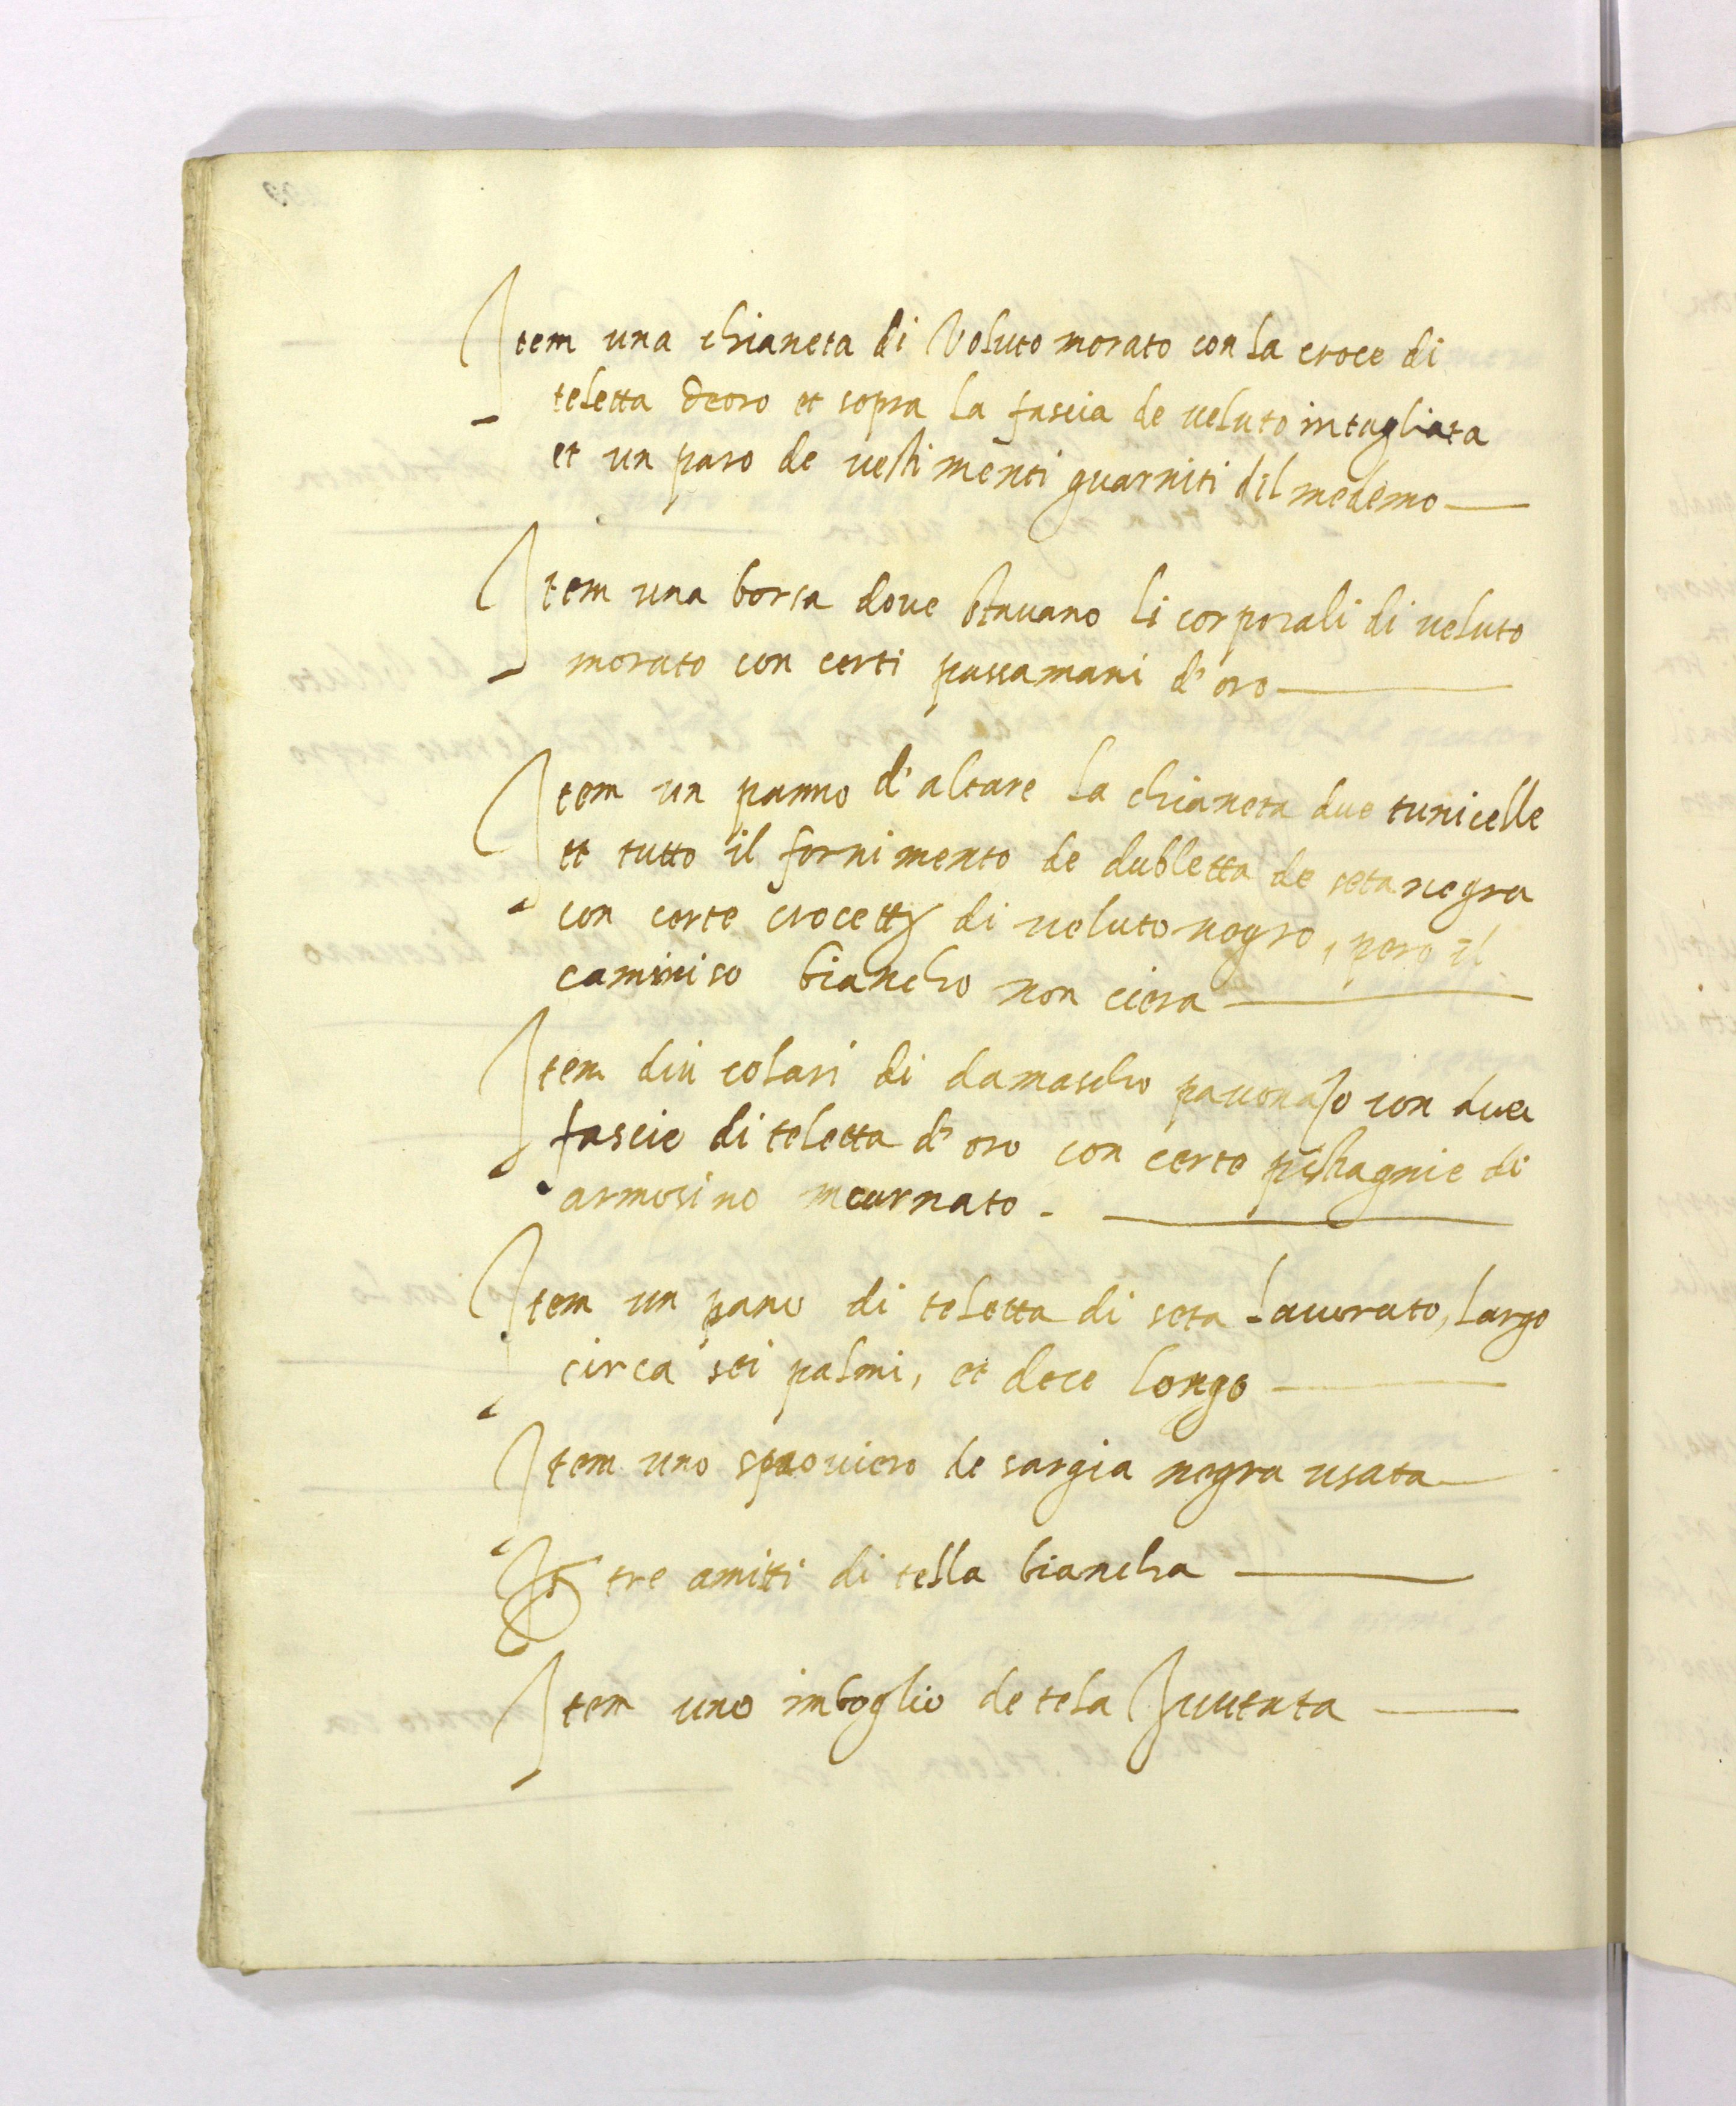 Item una chianeta di Veluto morato con la croce di
teletta deoro et sopra la fascia de veluto intagliata
et un paro de vestimenti guarniti dil medemo
Item una borsa dove stavano li corporali di veluto
morato con certi passamani d'oro
Item un panno d'altare la chianeta due tunicelle
et tutto il fornimento de dubletta de seta negra
con certe crocette di veluto negro, pero il
caminiso biancho non ciera
Item dui colari di damascho pavonazo con due
fascie di teletta d'oro con certe pistagnie di
armosino incarnato.
Item un pano di teletta di seta lavorato, largo
circa sei palmi, et dece longo
Item uno sparoviero de sargia negra usata
It tre amitti di tella biancha
Item uno imboglio de tela